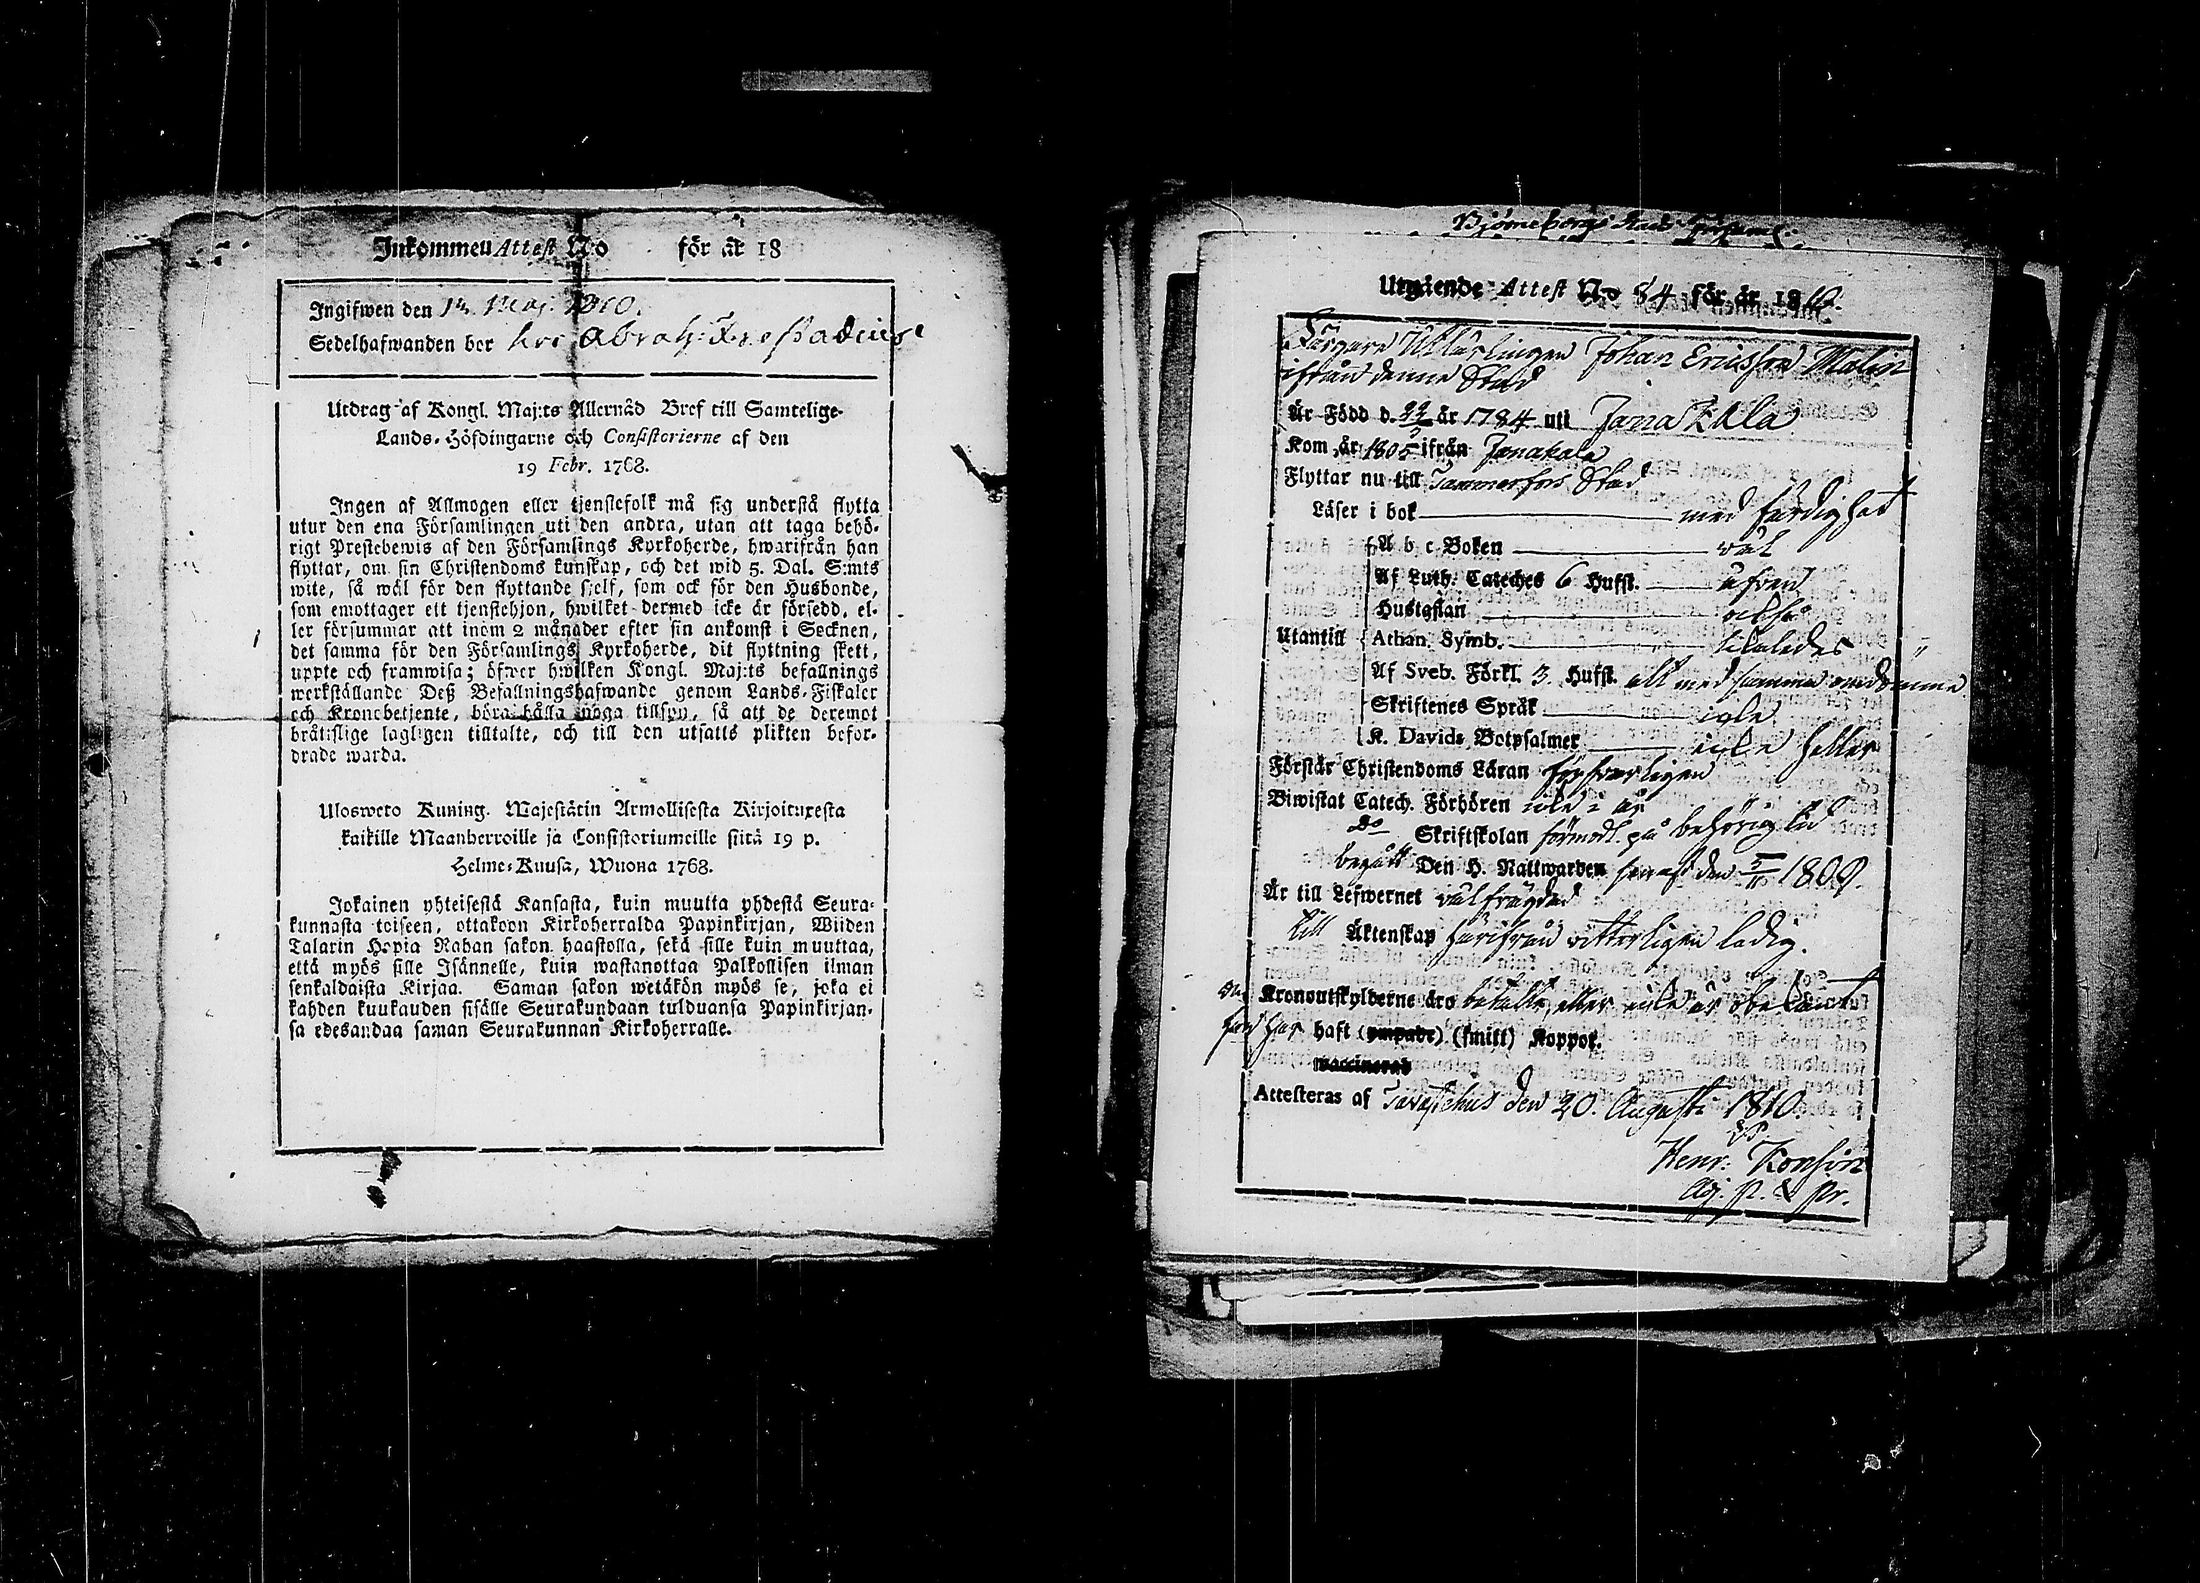 Inkommen Attest No för år 18
Ingifwen den 1 Maj. 1810.
Sedelhafwanden bor hos Abrah:
Utdrag af Kongl. Maj:ts Allernåd Bref till Samtelige
Lands-Höfdingarne och Consistorierne af den
19 Febr. 1768.
Ingen af Allmogen eller tjenstefolk må sig understå flytta
utur den ena Församlingen uti den andra, utan att taga behö-
rigt Prestebewis af den Församlings Kyrkoherde, hwarifrån han
flyttar, om sin Christendoms kunskap, och det wid 5. Dal. S:mts
wite, så wäl för den flyttande sjelf, som ock för den Husbonde,
som emottager ett tjenstehjon, hwilket dermed icke är försedd, el-
ler försummar att inom 2 månader efter sin ankomst i Socknen,
det samma för den Församlings Kyrkoherde, dit flyttning skett,
uppte och framwisa; öfwer hwilken Kongl. Maj:ts befallnings
werkställande Deß Befallningshafwande genom Lands-Fiskaler
och Kronobetjente, böra hålla noga tillsyn, så att de deremot
bråtslige lagligen tilltalte, och till den utsatts plikten befor-
drade warda.
Ulosweto Kuning. Majestätin Armollisesta Kirjoituxesta
kaikille Maanherroille ja Consistoriumeille siitä 19 p.
Helme-Kuusa, Wuona 1768.
Jokainen yhteisestä Kansasta, kuin muutta yhdestä Seura-
kunnasta toiseen, ottakoon Kirkoherralda Papinkirjan, Wiiden
Talarin Hopia Rahan sakon haastolla, sekä sille kuin muuttaa,
että myös sille Isännelle, kuin wastanottaa Palkollisen ilman
senkaldaista Kirjaa. Saman sakon wetäkön myös se, joka ei
kahden kuukauden sisälle Seurakundaan tulduansa Papinkirjan-
sa edesandaa saman Seurakunnan Kirkoherralle.
Björneborgs Stads Församl:
Utgående Attest No 84 för år 1810.
Färgare Utlärlingen Johan Ericsson Malin
ifrån denne Stad
Är Född d. 22/2 år 1784 uti Janakkala
Kom år 1805 ifrån Janakala
Flyttar nu till Tammerfors Stad
Läser i bok med färdighet
A b c Boken väl
Af Luth: Cateches 6 Hufst. äfven
Hustaflan altså
Utantill Athan. Symb. likaledes
Af Sveb. Förkl. 3. Hufst. allt med samma omdömme
Skriftenes Språk icke
K. Davids Botpsalmer icke heller
Förstår Christendoms Läran försvarligen
Biwistat Catech. Förhören icke i år
Do Skriftskolan förmodl. på behörig tid
begått Den H. Nattwarden senast den 5/11 1809.
Är till Lefwernet välfrägdad
till Äktenskap härifrån vitterligen ledig.
Om Kronoutskylderne äro betalte, eller icke är obekant
han har haft (ympade) (smitt) Koppor.
waccinerad
Attesteras af Tavastehus den 20. Augusti 1810.
Henr: Konsin
Adj. p. & pr.